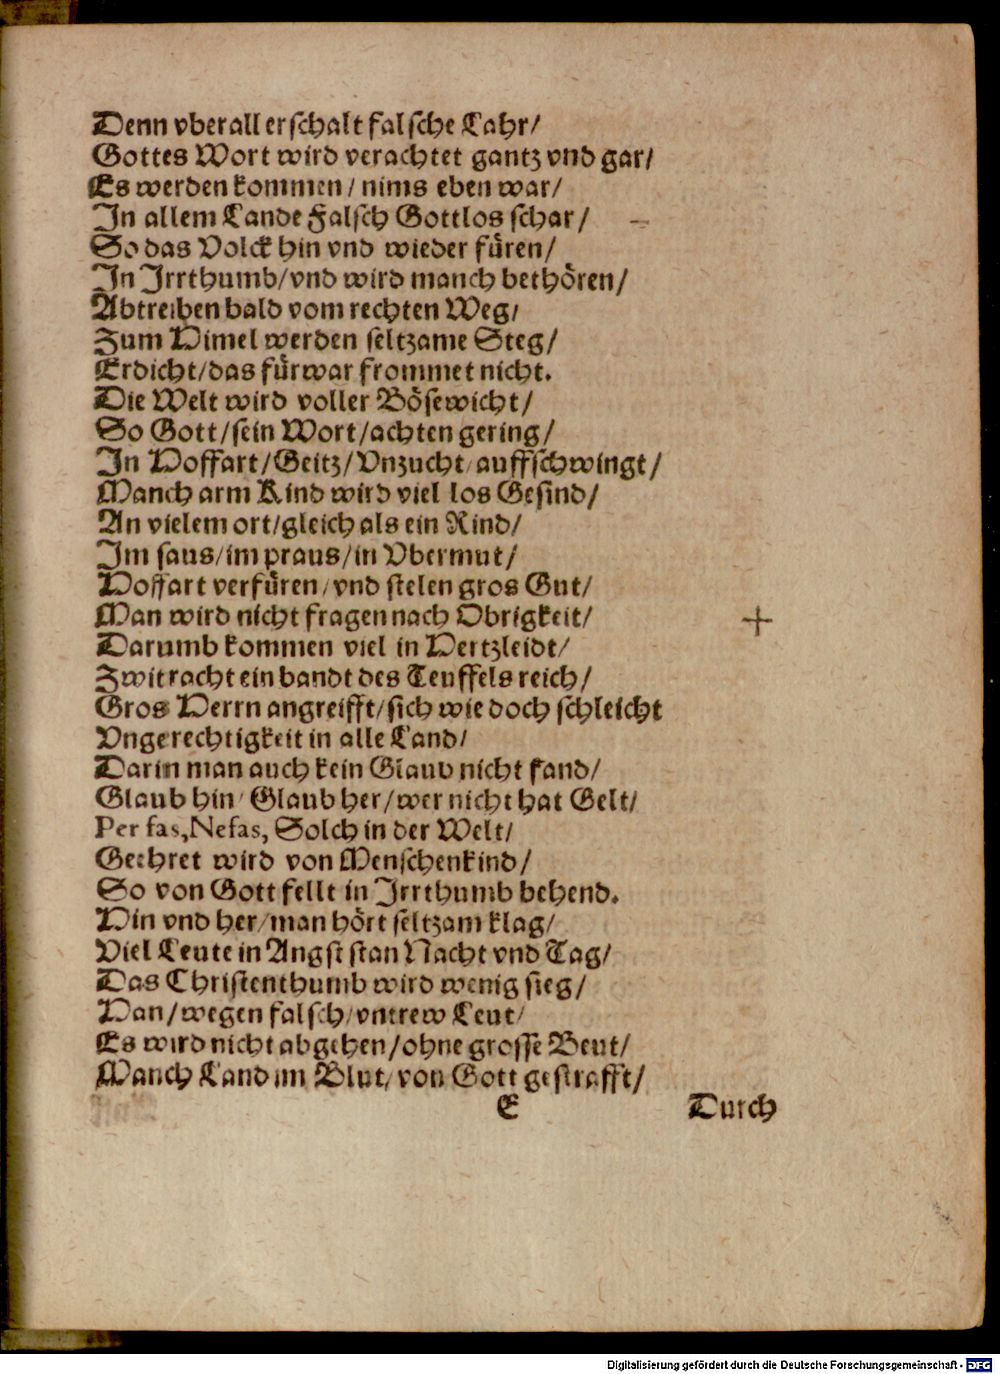 Denn vberall erschalt falsche Lahr/
Gottes Wort wird verachtet gantz vnd gar/
Es werden kommen/ nims eben war/
In allem Lande Falsch Gottlos schar/
So das Volck hin vnd wieder füren/
In Irrthumb/ vnd wird manch bethören/
Abtreiben bald vom rechten Weg/
Zum Himel werden seltzame Steg/
Erdicht/ das fürwar frommet nicht.
Die Welt wird voller Bösewicht/
So Gott/ sein Wort/ achten gering/
In Hoffart/ Geitz/ Vnzucht/ auffschwingt/
Manch arm Kind wird viel los Gesind/
An vielem ort/ gleich als ein Rind/
Im saus/ im praus/ in Vbermut/
Hoffart verfüren/ vnd stelen gros Gut/
Man wird nicht fragen nach Obrigkeit/
Darumb kommen viel in Hertzleidt/
Zwitracht ein bandt des Teuffels reich/
Gros Herrn angreifft/ sich wie doch schleicht
Vngerechtigkeit in alle Land/
Darin man auch kein Glaub nicht fand/
Glaub hin/ Glaub her/ wer nicht hat Gelt/
Per fas, Nefas, Solch in der Welt/
Geehret wird von Menschenkind/
So von Gott fellt in Irrthumb behend.
Hin vnd her/ man hört seltzam klag/
Viel Leute in Angst stan Nacht vnd Tag/
Das Christenthumb wird wenig sieg/
Han/ wegen falsch/ vntrew Leut/
Es wird nicht abgehen/ ohne grosse Beut/
Manch Land im Blut/ von Gott gestrafft/
E Durch
Digitalisierung gefördert durch die Deutsche Forschungsgemeinschaft - DFG